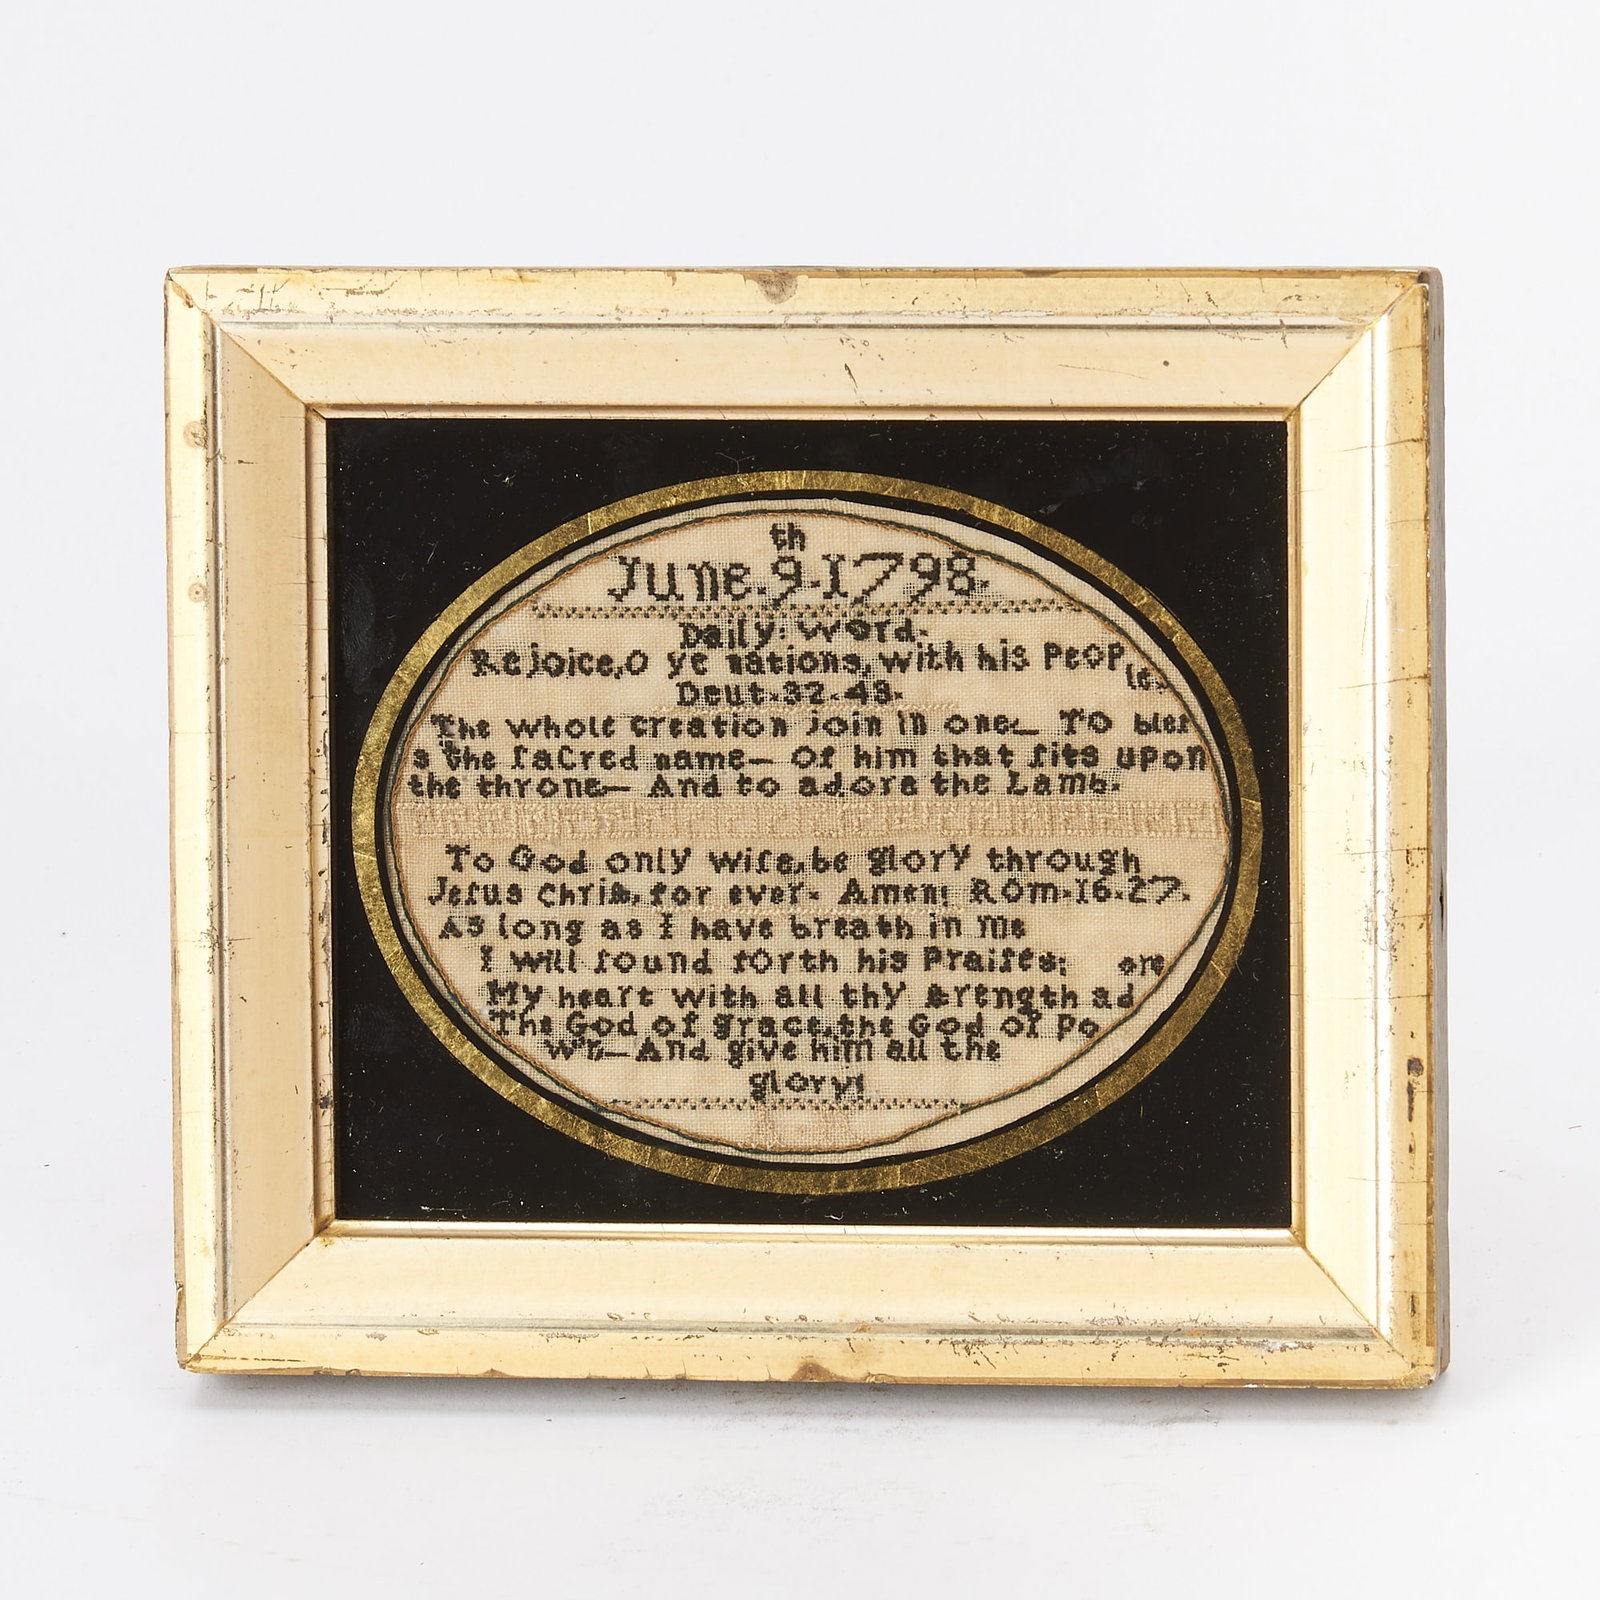 June. 9th. 1798.
Daily Word.
Rejoice, O ye nations, with his People.
Deut. 32. 43.
The whole creation join in one_ To bleſ
s the ſacred name_ Of him that ſits upon
the throne_ And to adore the Lamb.
To God only wiſe, be glory through
Jeſus Chriſt, for ever. Amen! Rom. 16. 27.
As long as I have breath in me
I will ſound forth his Praiſes;
My heart with all thy ſtrength adore
The God of grace, the God of Po
wr_ And give him all the
glory!